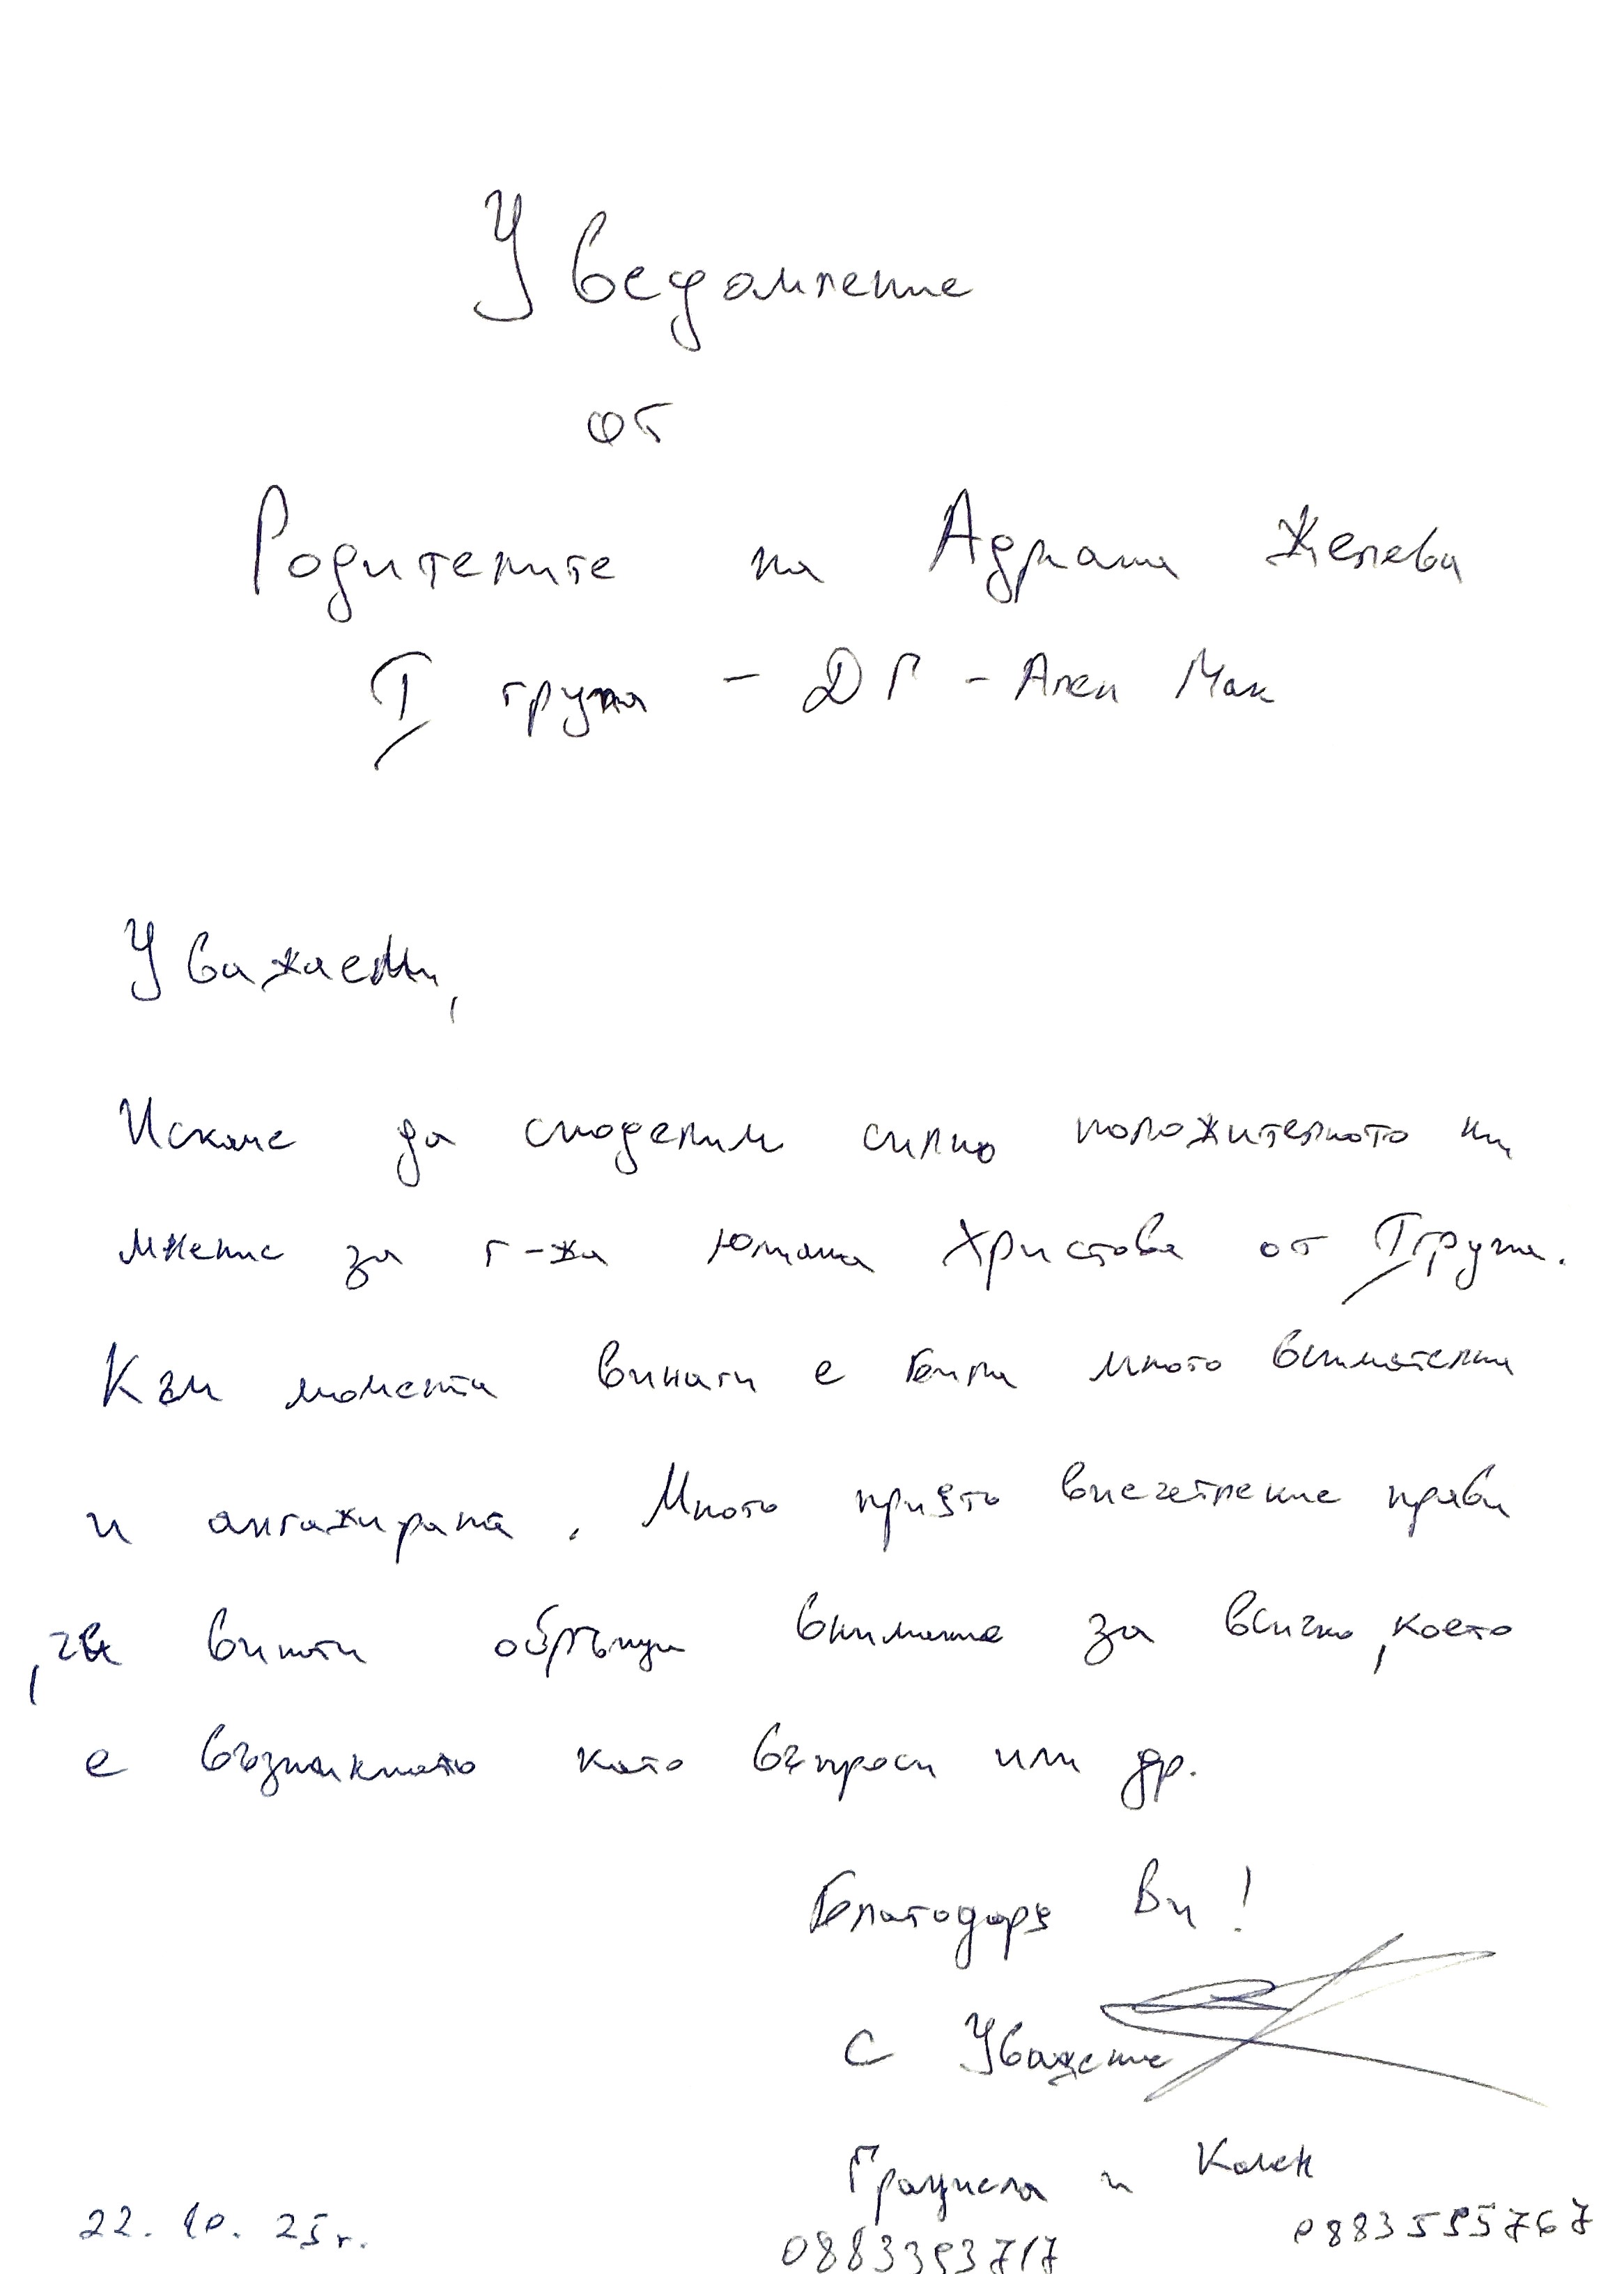 Уведомление
от
Родителите на Адриана Желева
I група - ДГ - Ален Мак
Уважаеми,
Искаме да споделим силно положителното ни
мнение за г-жа Юлиана Христова от I група.
Към момента винаги е била много внимателна
и ангажирана. Много приято впечетление прави
, че винаги обръща внимание за всичко, което
е възникнало като въпроси или др.
Благодаря Ви!
С Уважение
Грациела и Калин
22.10.25г.
0883393717
0883595767